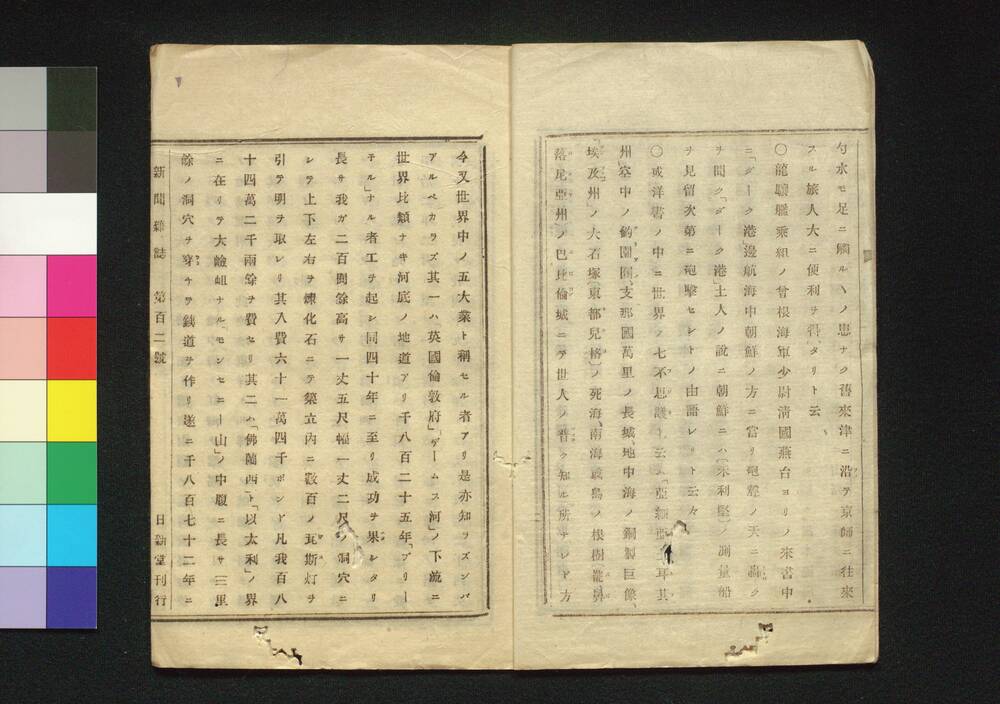 勺水モ足ニ觸ルヽノ患ナク舊來津ニ沿テ京師ニ往來
スル旅人大ニ便利ヲ得タリト云
〇龍驤艦乘組ノ曾根海軍少尉清國燕台ヨリノ來書中
ニ「グーク港」邊航海中朝鮮ノ方ニ當リ砲聲ノ天ニ轟ク
ヲ聞ク「グーク港」土人ノ說ニ朝鮮ニハ「米利堅」ノ測量船
ヲ見留次第ニ砲擊セシトノ由語レリト云々
〇或洋書ノ中ニ世界ヲ七不思議ト云フ「亞細亞」ノ耳其
州」空中ノ釣園圃、支那國萬里ノ長城、地中海ノ銅製巨像、
埃及州ノ大石塚「東都兒格」ノ死海、南海島ノ根樹龍
落尼亞州ノ巴比倫城ニテ世人ノ普ク知ル所ナレド方
今又世界中ノ五大業ト稱セル者アリ是亦知ラズンバ
アルベカラズ其一ハ英國倫敦府「デームス河」ノ下流ニ
世界比類ナキ河底ノ地道アリ千八百二十五年「ブリー
子ル」ナル者工ヲ起シ同四十年ニ至リ成功ヲ果レタリ
長サ我ガ二百間餘高サ一丈五尺幅一丈二尺ノ洞穴ニ
シテ上下左右ヲ煉化石ニテ築立內ニ數百ノ瓦斯灯ヲ
引テ明ヲ取レリ其入費六十一萬四千ポンド凡我百八
十四萬二千兩餘ヲ費セリ其二ハ「佛蘭西」ト「以太利」ノ界
ニ在リテ大嶮岨ナル「モンセニー山」ノ中腹ニ長サ三里
餘ノ洞穴ヲ穿チテ鐵道ヲ作リ遂ニ千八百七十二年ニ
新聞雜誌 第百二號 日新堂刊行